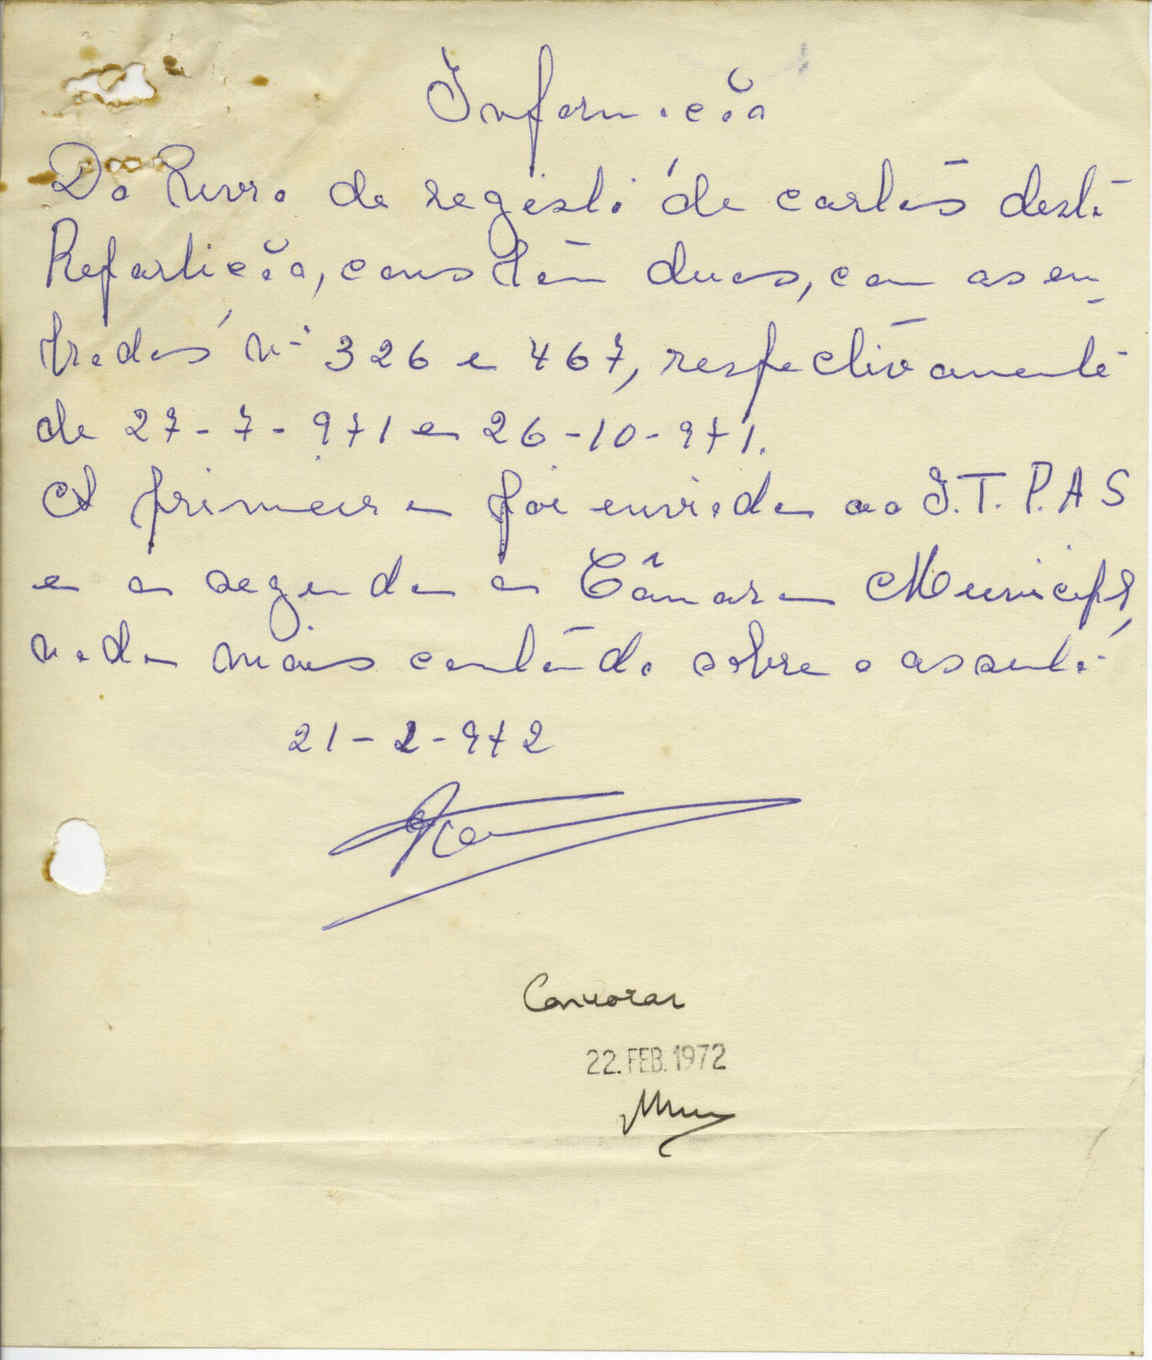 Informação
Do livro de registo de cartas desta
Repartição, constam duas, com as en-
tradas nº 326 e 467, respectivamente
de 27-7-971 e 26-10-971.
A primeira foi enviada ao I.T.P.A.S
e a segunda a Câmara Municipal,
nada mais contendo sobre o assunto.
21-2-972
22. FEB. 1972